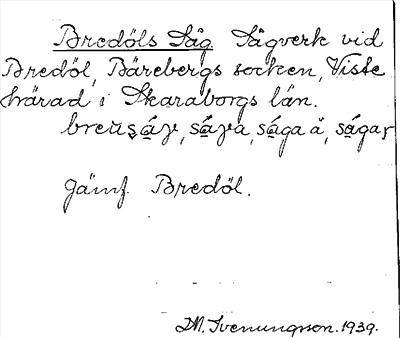 Bredöls Såg Sågverk vid
Bredöl, Bärebergs socken, Viste
härad i Skaraborgs län.
sága å, ságar
Jämf. Bredöl.
M. Svenungson. 1939.